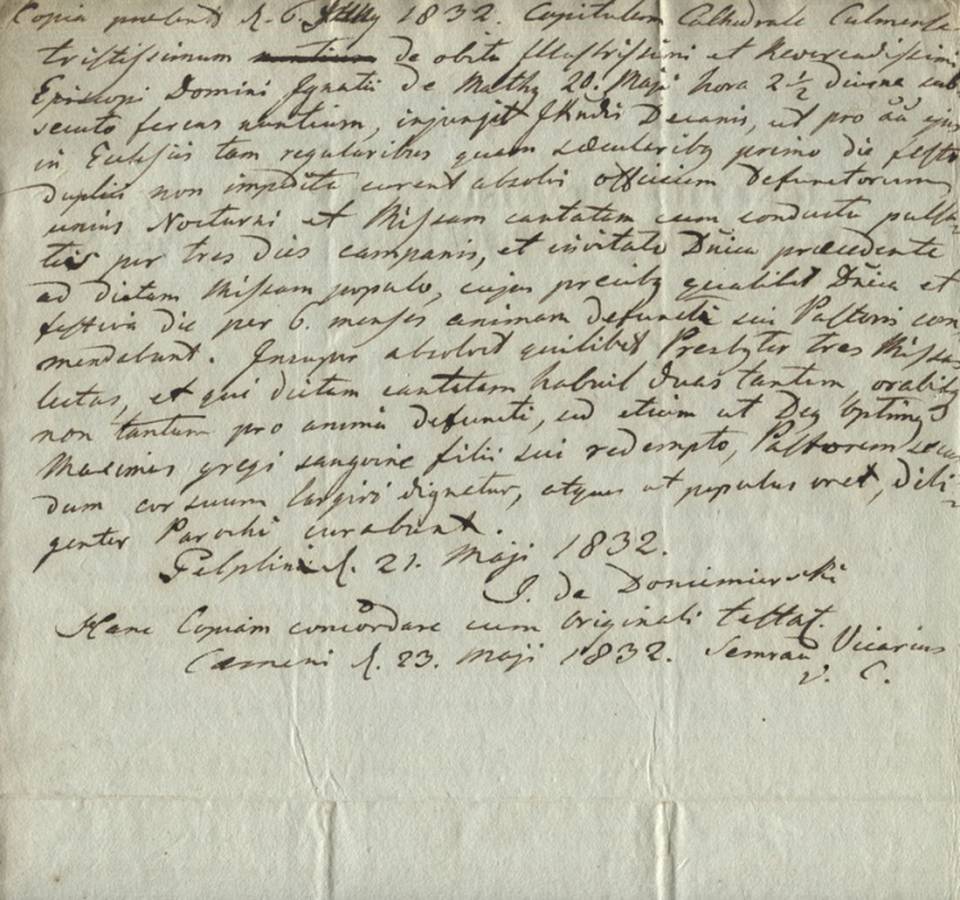 Copia d. 6. 1832. Capitulum Cathedrale Culmense
tristissimum nuntium de obitu Illustrissimi et Reverendissimi
Episcopi Domini Ignatii de Mathy 20. Maji hora 2 1/2 diurna sub-
secuto ferens nuntium, injungit Decanis, ut pro ejus
in Ecclesiis tam regularibus quam sæcularibq primo die festo
duplici non impedito curent absolvi officium Defunctorum
unius Nocturni et Missam cantatam cum conductu pulsa-
tis per tres dies campanis, et invitato Dnica præcedente
ad dictam Missam populo, cujus precibq qualibet Dnica et
festiva die per 6. menses animam defuncti sui Pastoris com
mendabunt. Insuper absolvet quilibet Presbyter tres Missas
lectas, et qui dictam cantatam habuit duas tantum, orabitq
non tantum pro anima defuncti, sed etiam ut Deq Optimq
Maximus gregi sanguine filii sui redempto, Pastorem secun
dum cor suum largiri dignetur, atque ut populus oret, dili-
genter Parochi curabunt.
Pelplini d. 21. Maji 1832.
J. de Donimierski
Hanc Copiam concordare cum Originali testat.
Cameni d. 23. Maji 1832. Semrau Vicarius
V. C.